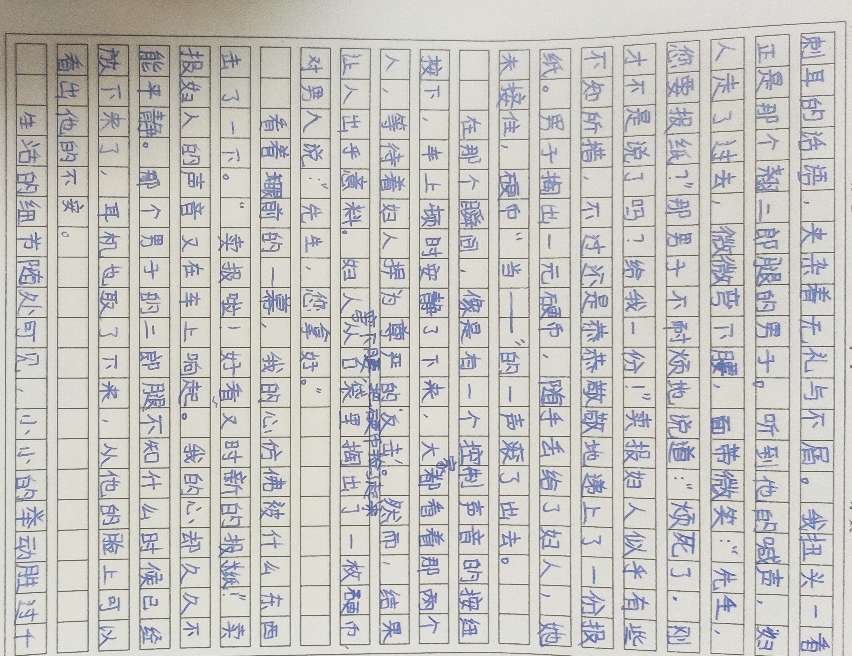 刺耳的话语，夹杂着无礼与不屑。我扭头一看
正是那个翘二郎腿的男子。听到他的喊声，妇
人走了过去，微微弯下腰，面带微笑：“先生，
您要报纸？”那男子不耐烦地说道：“烦死了，刚
才不是说了吗？给我一份！”卖报妇人似乎有些
不知所措，不过还是恭恭敬敬地递上了一份报
纸。男子掏出一元硬币，随手丢给了妇人，她
未接住，硬币“当——”的一声滚了出去。
在那个瞬间，像是有一个控制声音的按纽
按下，车上顿时安静了下来，大家都看着那两个
人，等待着妇人捍为尊严的“反击”。然而，结果
让人出乎意料。妇人弯下腰把硬币捡了起来从口袋里掏出了一枚硬币，
对男人说：“先生，您拿好。”
看着眼前的一幕，我的心仿佛被什么东西
击了一下。“卖报啦！好看又时新的报纸！”卖
报妇人的声音又在车上响起。我的心却久久不
能平静。那个男子的二郎腿不知什么时候已经
放下来了，耳机也取了下来，从他的脸上可以
看出他的不安。
生活的细节随处可见，小小的举动胜过千